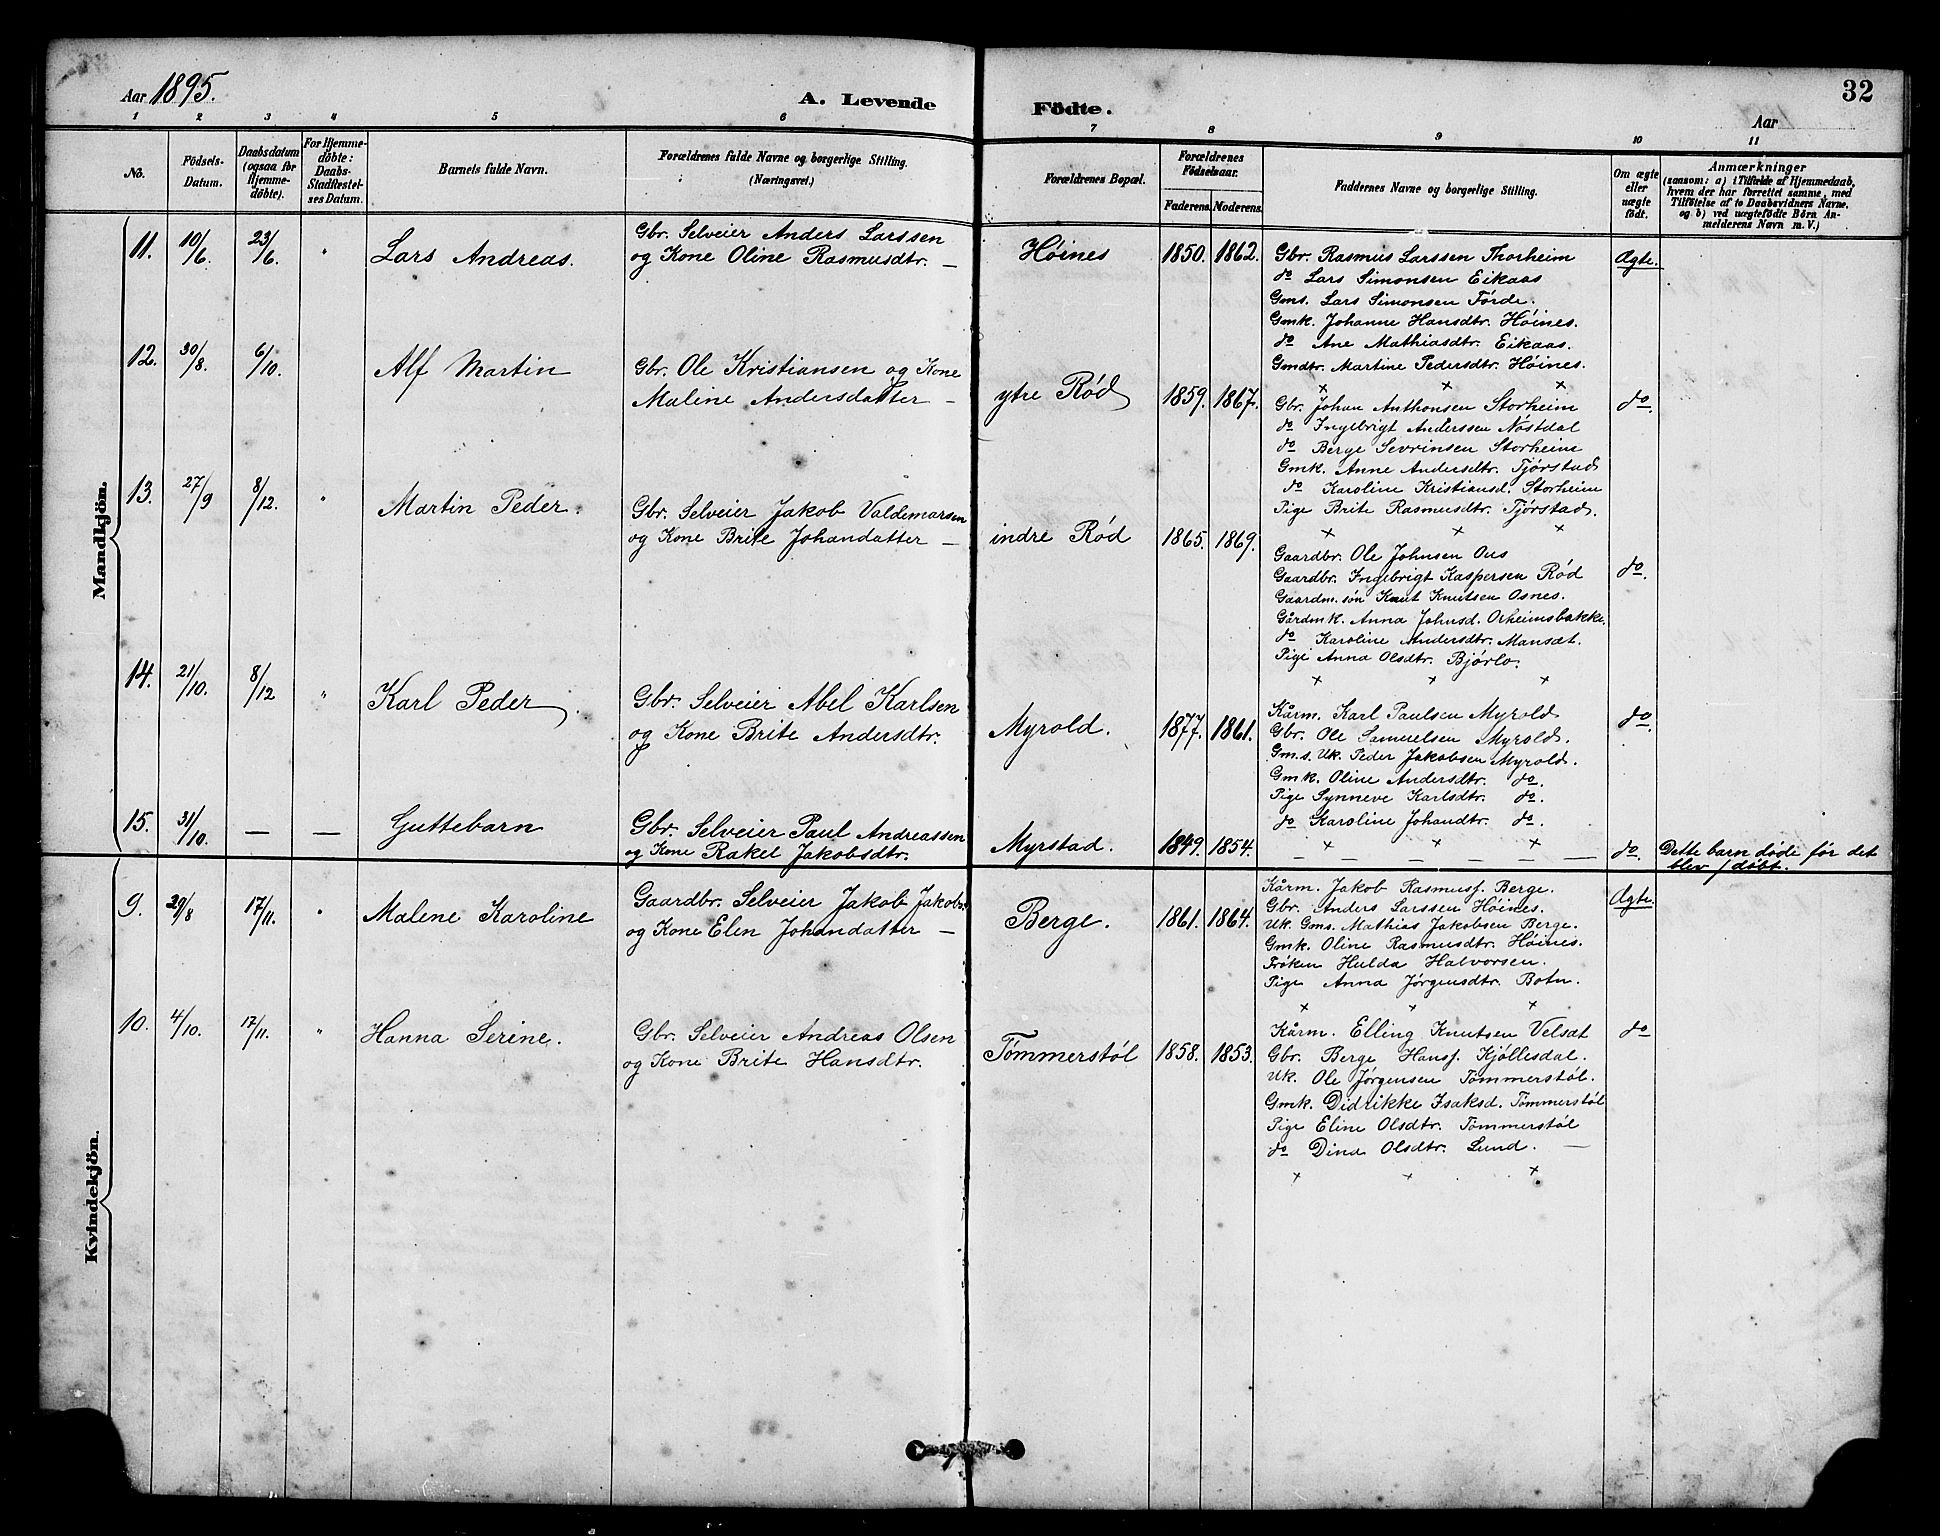 32
Aar 1895.
A. Levende Födte.
Aar
1 2 3 4 5 6 7 8 9 10 11
No.
Födsels-Datum.
Daabsdatum (ogsaa for Hjemme-döbte).
For Hjemme-döbte: Daabs-Stadfestel-ses Datum.
Barnets fulde Navn.
Forældrenes fulde Navne og borgerlige Stilling.
(Næringsvei.)
Forældrenes Bopæl.
Forældrenes Födselsaar.
Faderens. Moderens.
Faddernes Navne og borgerlige Stilling.
Om ægte eller uægte födt.
Anmærkninger
(saasom: a) i Tilfælde af Hjemmedaab,
hvem der har forrettet samme, med
Tilföielse af to Daabsvidners Navne,
og b) ved uægtefödte Börn An-
melderens Navn m.V.)
Mandkjön.
11. 10/6. 23/6. " Lars Andreas.
Gbr. Selveier Anders Larssen
og Kone Oline Rasmusdtr. —
Höines 1850. 1862.
Gbr. Rasmus Larssen Thorheim
do Lars Simonsen Eikaas
Gms. Lars Simonsen Förde.
Gmk. Johanne Hansdtr. Höines.
do Ane Mathiasdtr. Eikaas.
Gmdtr. Martine Pedersdtr. Höines.
x x x
Ægte.
12. 30/8. 6/10. Alf Martin
Gbr. Ole Kristiansen og Kone
Maline Andersdatter —
ytre Rød 1859. 1867.
Gbr. Johan Anthonsen Storheim
do Ingebrigt Anderssen Nöstdal
do Berge Sevrinsen Storheim
Gmk. Anne Andersdtr. Tjørstad
do Karoline Kristiansd. Storheim
Pige Brite Rasmusdtr. Tjørstad.
x x x
do.
13. 27/9 8/12. " Martin Peder.
Gbr. Selveier Jakob Valdemarsen
og Kone Brite Johandatter —
indre Rød 1865. 1869.
Gaardbr. Ole Johnsen Ous
Gaardbr. Ingebrigt Kaspersen Rød
Gaardm.søn Knut Knutsen Osnes.
Gårdmk. Anna Johnsd. Orheimsbakke.
do Karoline Andersdtr. Mansæt.
Pige Anna Olsdtr. Bjørlo.
x x x
do.
14. 21/10. 8/12 " Karl Peder
Gbr. Selveier Abel Karlsen
og Kone Brite Andersdtr.
Myrold. 1877. 1861.
Kårm. Karl Paulsen Myrold
Gbr. Ole Samuelsen Myrold.
Gm.s. Uk. Peder Jakobsen Myrold.
Gmk. Oline Andersdtr. do.
Pige Synneve Karlsdtr. do.
do Karoline Johandtr. do.
x x x
do
15. 31/10. — — Guttebarn
Gbr. Selveier Paul Andreassen
og Kone Rakel Jakobsdtr.
Myrstad. 1849. 1854.
— — — — — — —
do.
Dette barn døde før det
blev / døbt.
Kvindekjön.
9. 29/8 17/11. " Malene Karoline
Gaardbr. Selveier Jakob Jakobs.
og Kone Elen Johandatter —
Berge. 1861. 1864.
Kårm. Jakob Rasmusf. Berge.
Gbr. Anders Larssen Höines.
Uk. Gms. Mathias Jakobsen Berge.
Gmk. Oline Rasmusdtr. Höines.
Frøken Hulda Halvorsen.
Pige Anna Jørgensdtr. Botn.
x x x
Ægte.
10. 4/10. 17/11. " Hanna Serine.
Gbr. Selveier Andreas Olsen
og Kone Brite Hansdtr.
Tömmerstöl 1858. 1853.
Kårm. Elling Knutsen Velsæt
Gbr. Berge Hansf. Kjöllesdal.
Uk. Ole Jørgensen Tömmerstöl.
Gmk. Didrikke Isaksd. Tömmerstöl
Pige Eline Olsdtr. Tömmerstöl
do Dina Olsdtr. Lund. —
x x x
do